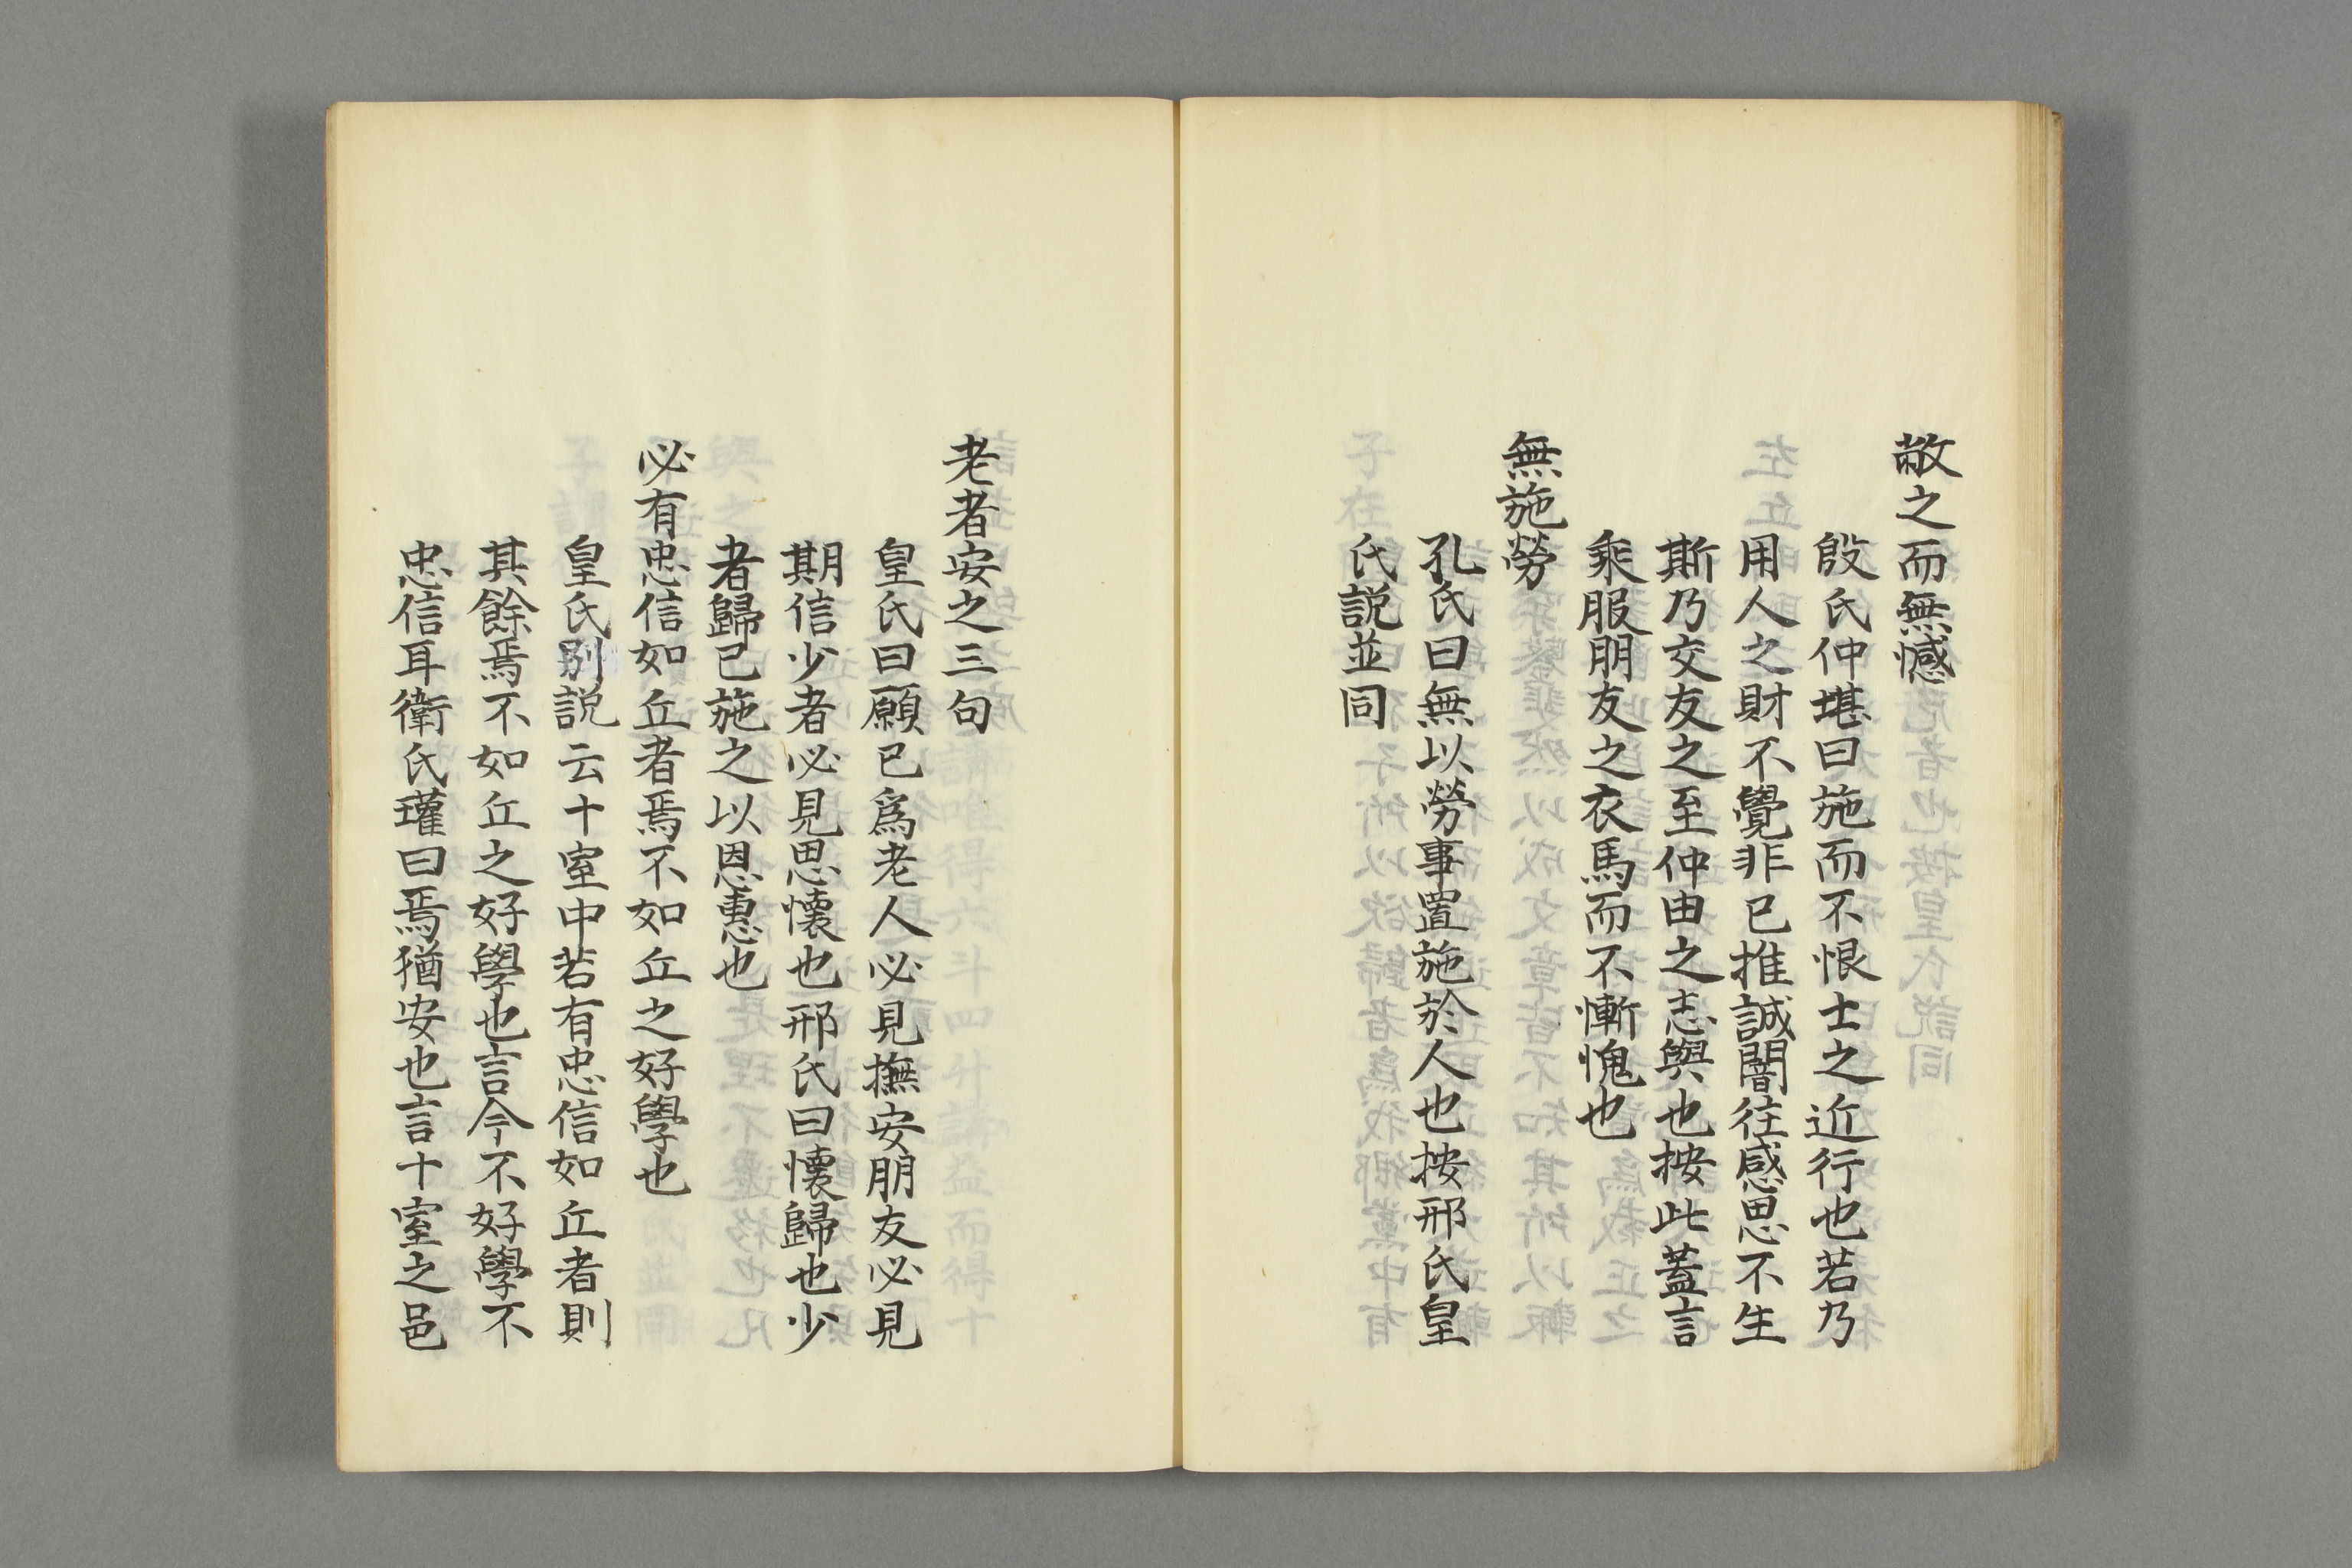 敝之而無憾
殷氏仲堪曰施而不恨士之近行也若乃
用人之財不覺非已推誠闇往感思不生
斯乃交友之至仲由之志與也按此蓋言
乘服朋友之衣馬而不慚愧也
無施勞
孔氏曰無以勞事置施於人也按邢氏皇
氏説並同
老者安之三句
皇氏曰願已爲老人必見撫安朋友必見
期信少者必見思懷也邢氏曰懷歸也少
者歸已施之以恩惠也
必有忠信如丘者焉不如丘之好學也
皇氏別説云十室中若有忠信如丘者則
其餘焉不如丘之好學也言今不好學不
忠信耳衛氏瓘曰焉猶安也言十室之邑